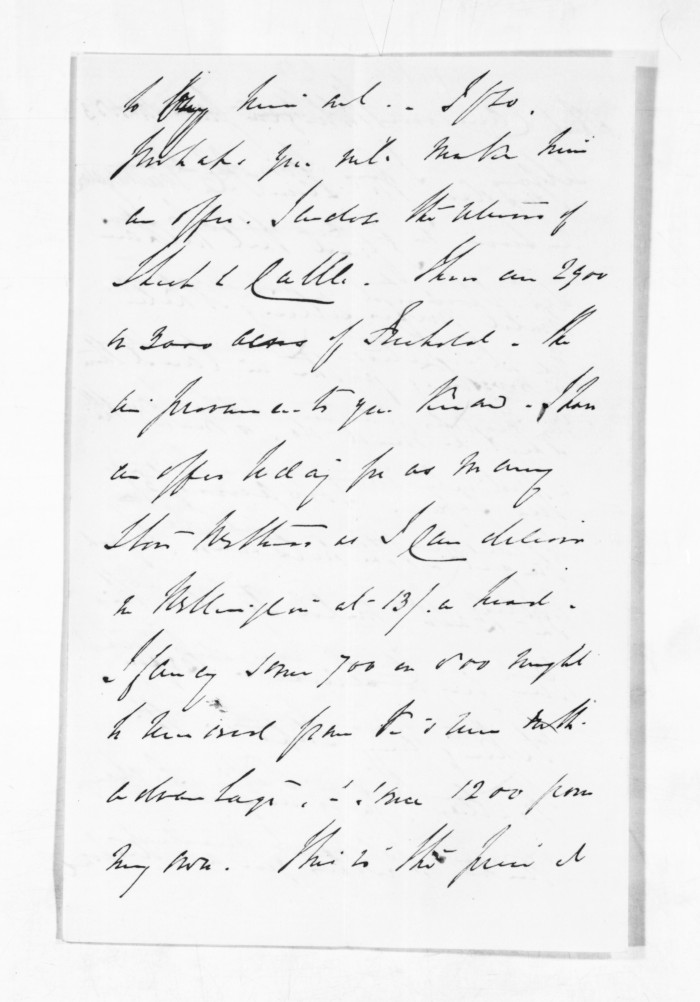 to buy him out. - If so,
perhaps you will make him
an offer. I enclose the returns of
Sheep & Cattle. There are 2900
or 3000 acres of Freehold - the
improvements you know. I have
an offer today for as many
Store Wethers as I can deliver
in Wellington at 13/. a head.
I fancy some 700 or 800 might
be removed from the run with
advantage, & some 1200 from
my own. This is the price I